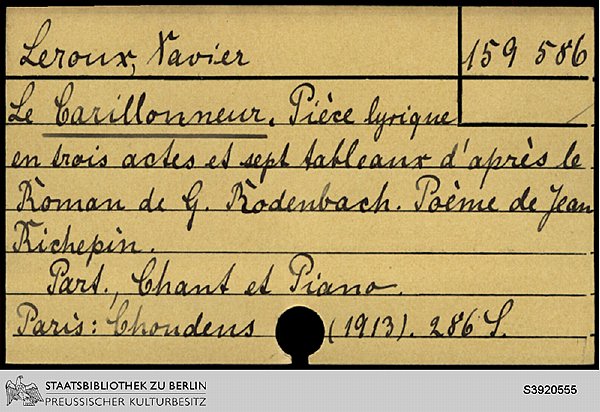 Leroux, Xavier
159 586
Le Carillonneur. Pièce lyrique
en trois actes et sept tableaux d'après le
Roman de G. Rodenbach. Poème de Jean
Richepin.
Part., Chant et Piano.
Paris: Choudens (1913). 286 S.
STAATSBIBLIOTHEK ZU BERLIN
PREUSSISCHER KULTURBESITZ
S3920555